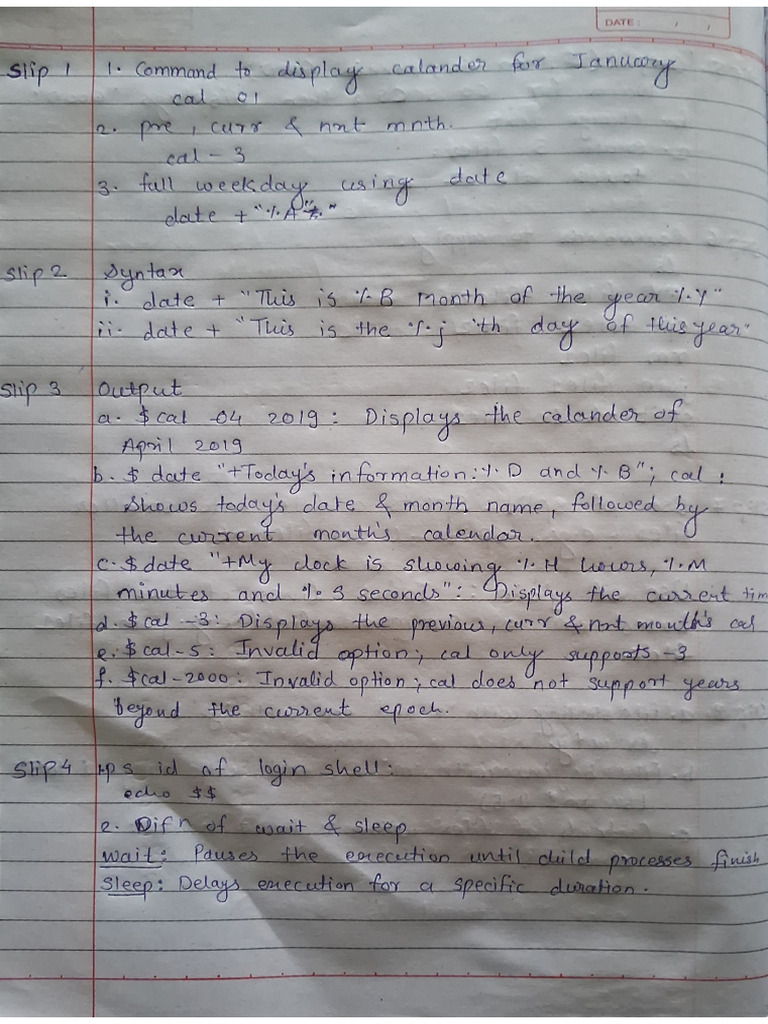 DATE : / /
Slip 1 1. Command to display calander for January
cal 01
2. pre, curr & nxt mnth.
cal -3
3. full weekday using date
date + "%A"
Slip 2 Syntax
i. date + "This is %B month of the year %Y"
ii. date + "This is the %j 'th day of this year"
Slip 3 Output
a. $cal -04 2019 : Displays the calander of
April 2019
b. $ date "+Today's information: % D and % B"; cal :
shows today's date & month name, followed by
the current month's calendar.
c. $date "+My clock is showing %H hours, %M
minutes and %S seconds": Displays the current tim
d. $cal -3: Displays the previous, curr & nxt mouth's cal
e. $cal-5: Invalid option; cal only supports -3
f. $cal-2000: Invalid option; cal does not support years
beyond the current epoch.
Slip 4 1. ps id of login shell:
echo $$
2. Difn of wait & sleep
Wait: Pauses the execution until child processes finish
Sleep: Delays execution for a specific duration.